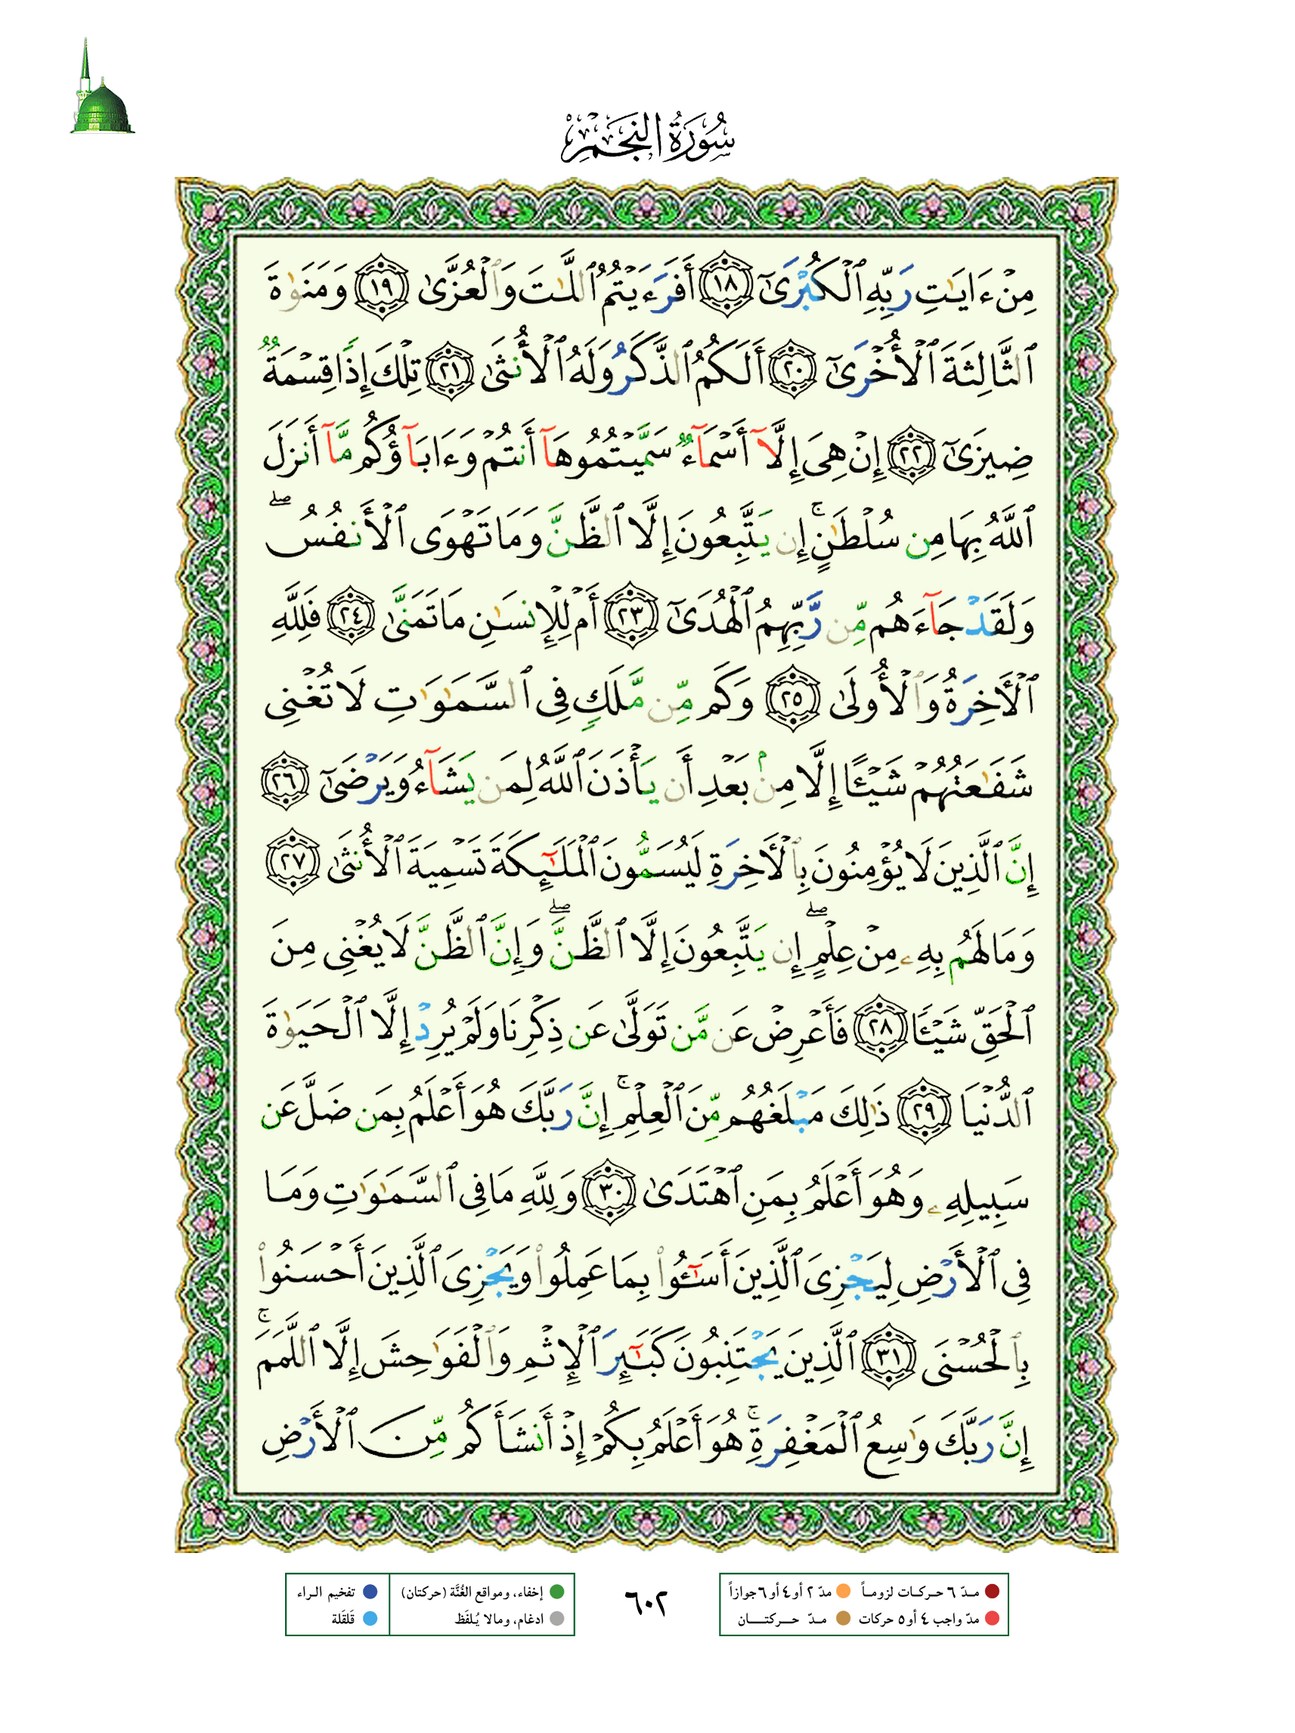 سُورَةُ النَّجْمِ
مِنْ ءَايَٰتِ رَبِّهِ ٱلْكُبْرَىٰٓ ١٨ أَفَرَءَيْتُمُ ٱللَّٰتَ وَٱلْعُزَّىٰ ١٩ وَمَنَوٰةَ
ٱلثَّالِثَةَ ٱلْأُخْرَىٰٓ ٢٠ أَلَكُمُ ٱلذَّكَرُ وَلَهُ ٱلْأُنثَىٰ ٢١ تِلْكَ إِذًا قِسْمَةٌ
ضِيزَىٰٓ ٢٢ إِنْ هِىَ إِلَّآ أَسْمَآءٌ سَمَّيْتُمُوهَآ أَنتُمْ وَءَابَآؤُكُم مَّآ أَنزَلَ
ٱللَّهُ بِهَا مِن سُلْطَٰنٍ ۚ إِن يَتَّبِعُونَ إِلَّا ٱلظَّنَّ وَمَا تَهْوَى ٱلْأَنفُسُ ۖ
وَلَقَدْ جَآءَهُم مِّن رَّبِّهِمُ ٱلْهُدَىٰٓ ٢٣ أَمْ لِلْإِنسَٰنِ مَا تَمَنَّىٰ ٢٤ فَلِلَّهِ
ٱلْءَاخِرَةُ وَٱلْأُولَىٰ ٢٥ وَكَم مِّن مَّلَكٍ فِى ٱلسَّمَٰوَٰتِ لَا تُغْنِى
شَفَٰعَتُهُمْ شَيْـًٔا إِلَّا مِنۢ بَعْدِ أَن يَأْذَنَ ٱللَّهُ لِمَن يَشَآءُ وَيَرْضَىٰٓ ٢٦
إِنَّ ٱلَّذِينَ لَا يُؤْمِنُونَ بِٱلْءَاخِرَةِ لَيُسَمُّونَ ٱلْمَلَٰٓئِكَةَ تَسْمِيَةَ ٱلْأُنثَىٰ ٢٧
وَمَا لَهُم بِهِۦ مِنْ عِلْمٍ ۖ إِن يَتَّبِعُونَ إِلَّا ٱلظَّنَّ ۖ وَإِنَّ ٱلظَّنَّ لَا يُغْنِى مِنَ
ٱلْحَقِّ شَيْـًٔا ٢٨ فَأَعْرِضْ عَن مَّن تَوَلَّىٰ عَن ذِكْرِنَا وَلَمْ يُرِدْ إِلَّا ٱلْحَيَوٰةَ
ٱلدُّنْيَا ٢٩ ذَٰلِكَ مَبْلَغُهُم مِّنَ ٱلْعِلْمِ ۚ إِنَّ رَبَّكَ هُوَ أَعْلَمُ بِمَن ضَلَّ عَن
سَبِيلِهِۦ وَهُوَ أَعْلَمُ بِمَنِ ٱهْتَدَىٰ ٣٠ وَلِلَّهِ مَا فِى ٱلسَّمَٰوَٰتِ وَمَا
فِى ٱلْأَرْضِ لِيَجْزِىَ ٱلَّذِينَ أَسَٰٓـُٔوا۟ بِمَا عَمِلُوا۟ وَيَجْزِىَ ٱلَّذِينَ أَحْسَنُوا۟
بِٱلْحُسْنَى ٣١ ٱلَّذِينَ يَجْتَنِبُونَ كَبَٰٓئِرَ ٱلْإِثْمِ وَٱلْفَوَٰحِشَ إِلَّا ٱللَّمَمَ ۚ
إِنَّ رَبَّكَ وَٰسِعُ ٱلْمَغْفِرَةِ ۚ هُوَ أَعْلَمُ بِكُمْ إِذْ أَنشَأَكُم مِّنَ ٱلْأَرْضِ
مـدّ ٦ حـركـات لزومـاً مدّ ٢ أو ٤ أو ٦ جوازاً
مدّ واجب ٤ أو ٥ حركات مـدّ حـــركتـــــان
٦٠٢
إخفاء، ومواقع الغُنَّة (حركتان) تفخيم الراء
ادغام، ومالا يُـلفَظ قَلقَلة